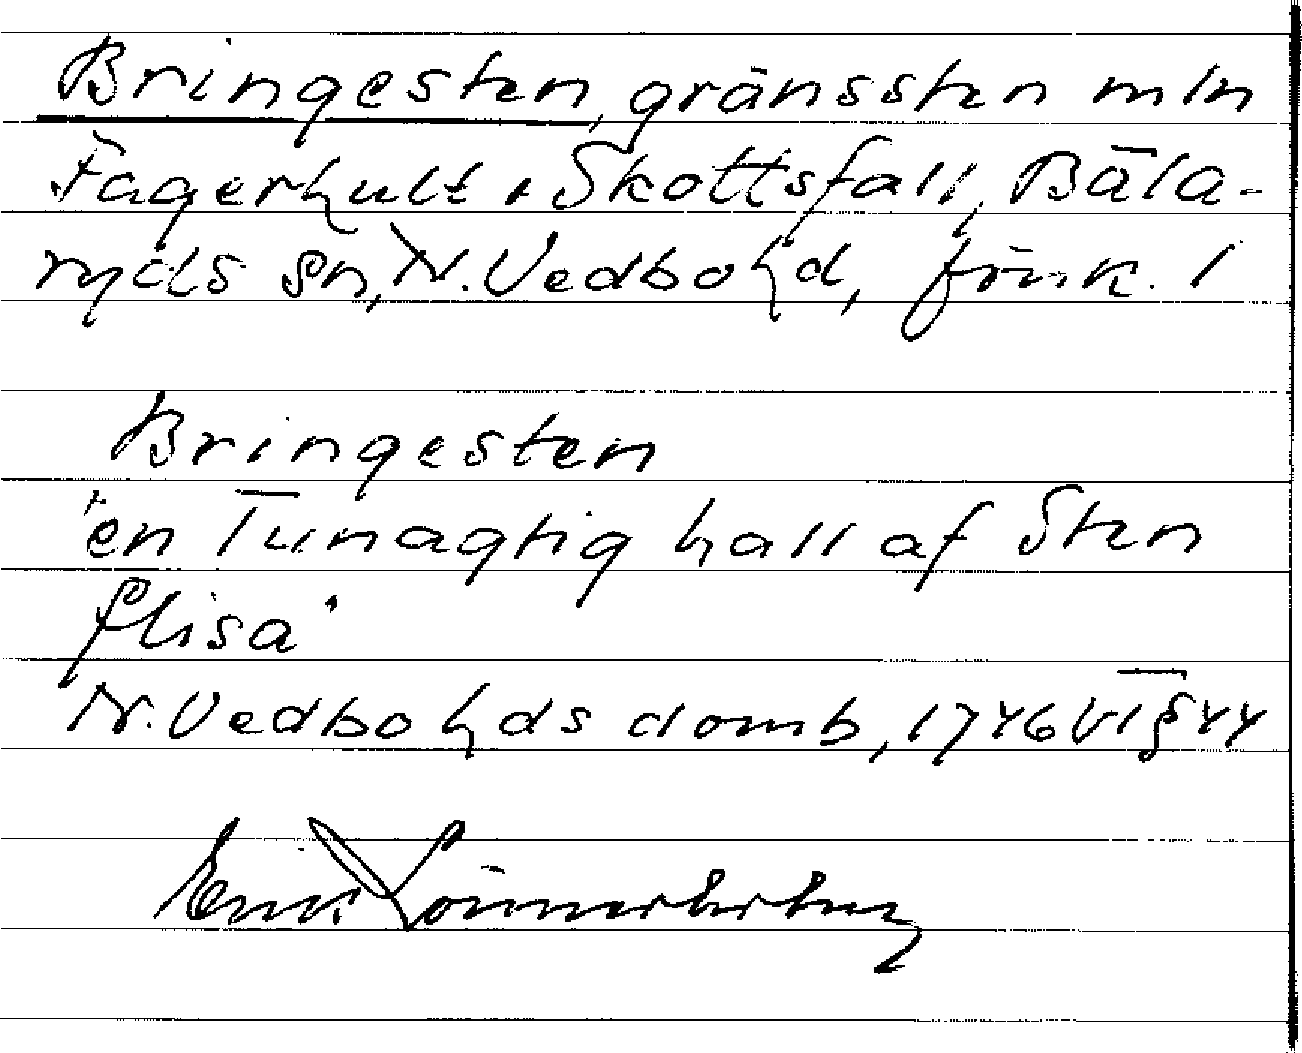 Bringesten, gränssten mln
Fagerhult o Skottsfall, Bäla-
ryds sn, N. Vedbo hd, Jönk. l
Bringesten
"en Tunagtig hall af Sten
flisa"
N. Vedbo hds domb, 1746 VT § 44
Erik